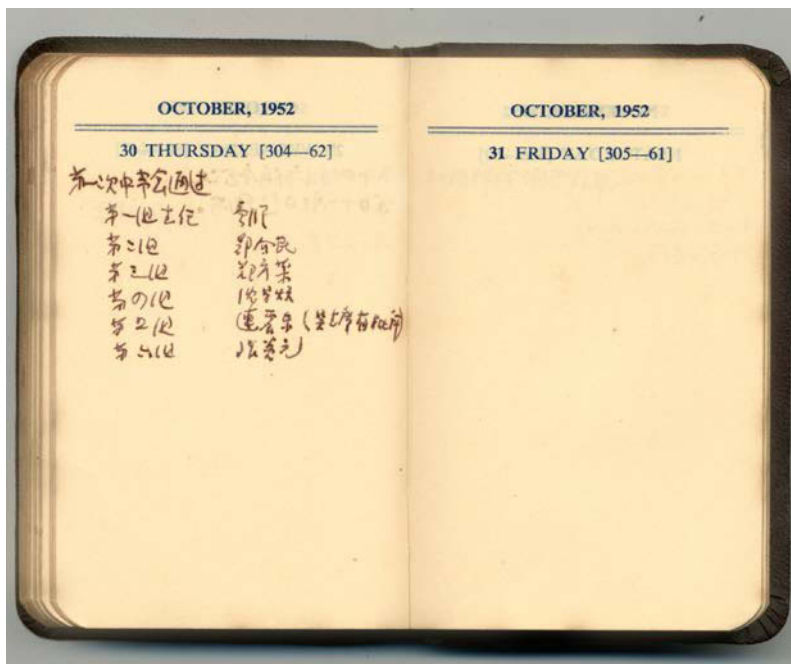 OCTOBER, 1952
30 THURSDAY [304—62]
第一次中常会通过
第一组主任
第二组 郑介民
第三组 郑彦棻
第四组 沈昌焕
第五组 连震东
第六组 张炎元
OCTOBER, 1952
31 FRIDAY [305—61]